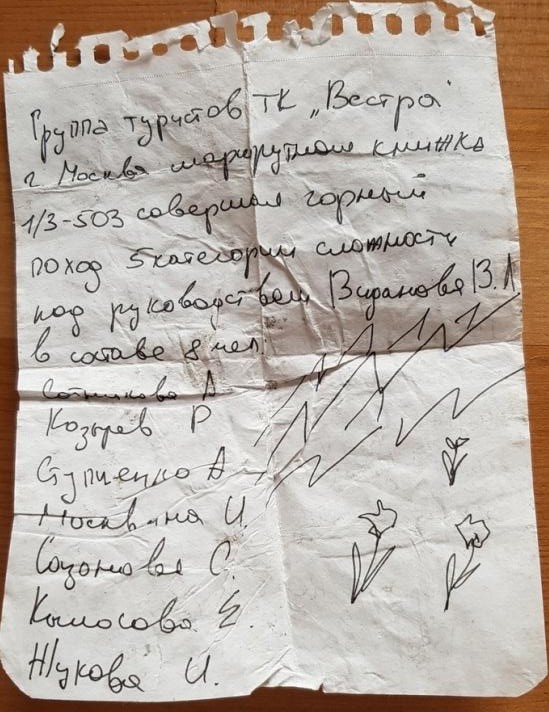 Группа туристов ТК „Вестра"
г. Москва маршрутная книжка
1/3-503 совершил горный
поход 5 категории сложности
под руководством В.Л
в составе 8 чел.
Сотникова А
Козырев Р
Ступиенко А
Москвина И.
С.
Е.
Жукова И.